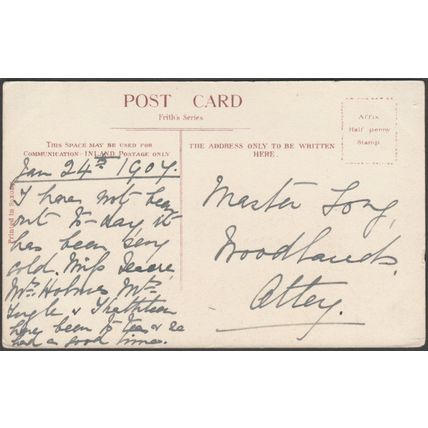 POST CARD
Frith's Series
THIS SPACE MAY BE USED FOR
COMMUNICATION—INLAND POSTAGE ONLY
THE ADDRESS ONLY TO BE WRITTEN
HERE.
Affix
Half penny
Stamp
Printed in
Jan 24th 1907.
I have not been
out to-day it
has been very
cold. Miss
Mrs Holmes Mrs
&
have been to tea &
had a good time.
Master Long,
Woodlands,
Ottey.